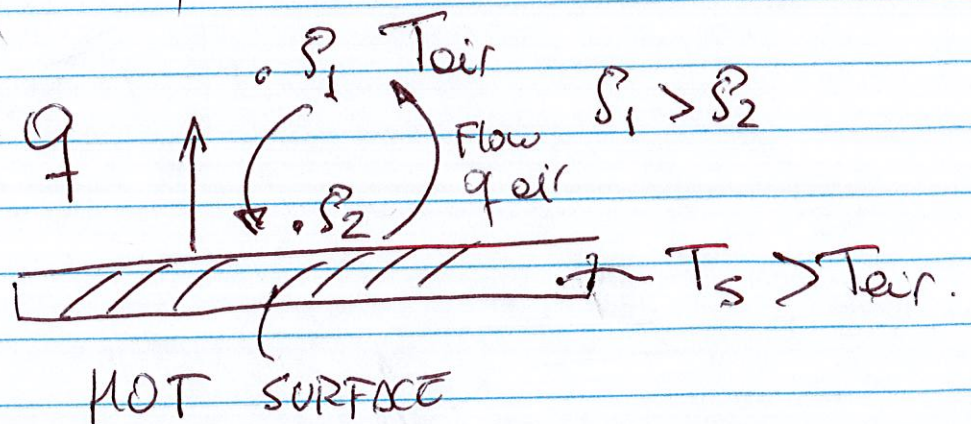 . ρ₁ Tair
ρ₁ > ρ₂
q
Flow
q air
. ρ₂
Ts > Tair.
HOT SURFACE